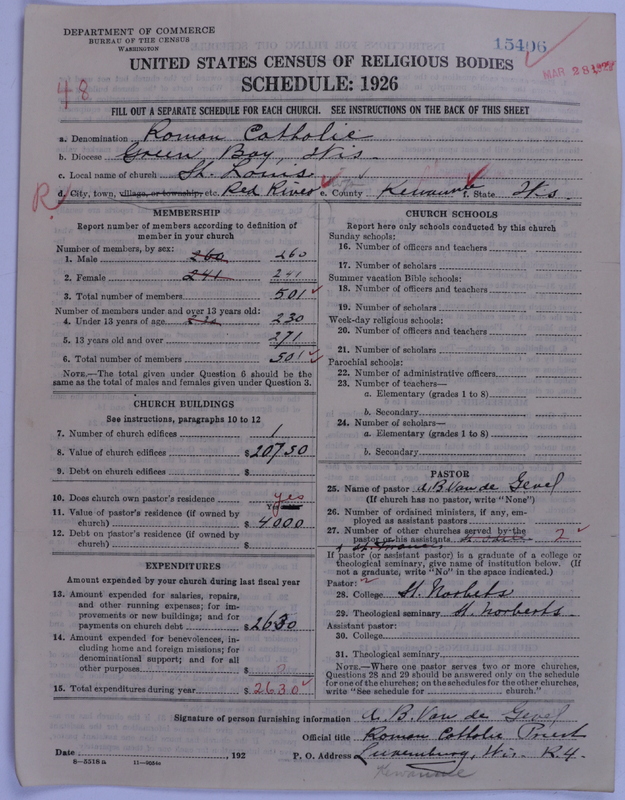 DEPARTMENT OF COMMERCE
BUREAU OF THE CENSUS
WASHINGTON
15406
UNITED STATES CENSUS OF RELIGIOUS BODIES
MAR 28 1928
SCHEDULE: 1926
48
FILL OUT A SEPARATE SCHEDULE FOR EACH CHURCH. SEE INSTRUCTIONS ON THE BACK OF THIS SHEET
a. Denomination Roman Catholic
b. Diocese Green Bay, Wis.
c. Local name of church St. Louis
R. d. City, town, village, or township, etc. Red River e. County Kewaunee f. State Wis.
MEMBERSHIP
Report number of members according to definition of
member in your church
Number of members, by sex:
1. Male 260 260
2. Female 241 241
3. Total number of members 501
Number of members under and over 13 years old:
4. Under 13 years of age 230
5. 13 years old and over 271
6. Total number of members 501
NOTE.—The total given under Question 6 should be the
same as the total of males and females given under Question 3.
CHURCH BUILDINGS
See instructions, paragraphs 10 to 12
7. Number of church edifices 1
8. Value of church edifices $20750
9. Debt on church edifices $
10. Does church own pastor's residence yes
Yes
11. Value of pastor's residence (if owned by
church) $4000
12. Debt on pastor's residence (if owned by
church) $
EXPENDITURES
Amount expended by your church during last fiscal year
13. Amount expended for salaries, repairs,
and other running expenses; for im-
provements or new buildings; and for
payments on church debt $2630
14. Amount expended for benevolences, in-
cluding home and foreign missions; for
denominational support; and for all
other purposes $ ?
15. Total expenditures during year $2630
CHURCH SCHOOLS
Report here only schools conducted by this church
Sunday schools:
16. Number of officers and teachers
17. Number of scholars
Summer vacation Bible schools:
18. Number of officers and teachers
19. Number of scholars
Week-day religious schools:
20. Number of officers and teachers
21. Number of scholars
Parochial schools:
22. Number of administrative officers
23. Number of teachers—
a. Elementary (grades 1 to 8)
b. Secondary
24. Number of scholars—
a. Elementary (grades 1 to 8)
b. Secondary
PASTOR
25. Name of pastor A. B. Van de Gevel
(If church has no pastor, write "None")
26. Number of ordained ministers, if any, em-
ployed as assistant pastors
27. Number of other churches served by the
pastor or his assistants St. Odile 2
& St. Francis
If pastor (or assistant pastor) is a graduate of a college or
theological seminary, give name of institution below. (If
not a graduate, write "No" in the space indicated.)
Pastor: 2
28. College St. Norberts
29. Theological seminary St. Norberts
Assistant pastor:
30. College
31. Theological seminary
NOTE.—Where one pastor serves two or more churches,
Questions 28 and 29 should be answered only on the schedule
for one of the churches; on the schedules for the other churches,
write "See schedule for church."
Signature of person furnishing information A. B. Van de Gevel
Official title Roman Catholic Priest
Date , 192 P. O. Address Luxemburg, Wis. R.4.
8—5518a 11—9054a
Kewaunee